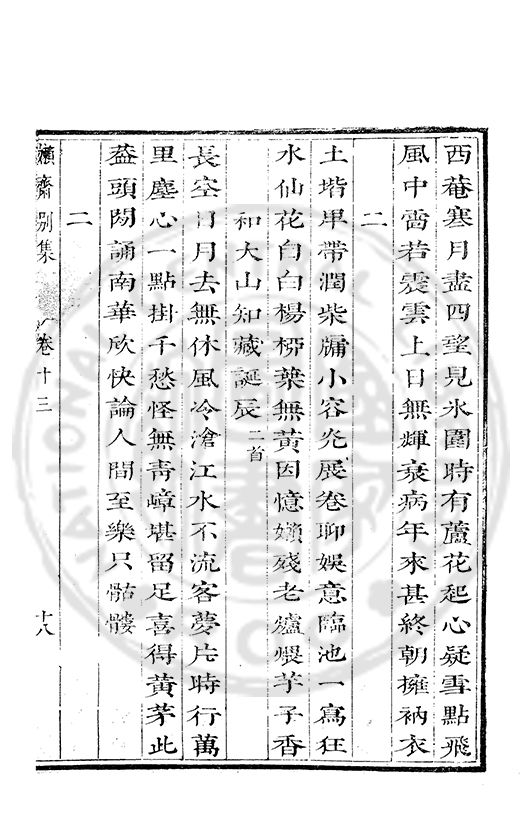 西菴寒月盡四望見氷圍時有蘆花起心疑雪點飛
風中雷若震雲上日無輝衰病年來甚終朝擁衲衣
二
土堦卑帶潤柴牖小容光展卷聊娛意臨池一寫狂
水仙花自白楊栁葉無黃因憶嬾殘老爐煨芋子香
和大山知藏誕辰二首
長空日月去無休風冷滄江水不流客夢片時行萬
里塵心一點掛千愁怪無靑嶂堪畱足喜得黃茅此
葢頭閱誦南華欣快論人間至樂只骷髏
二
嬾齋別集 卷十三 十八